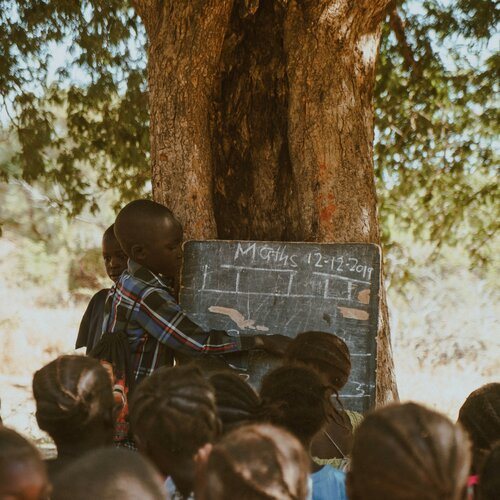 Maths 12-12-2019
3